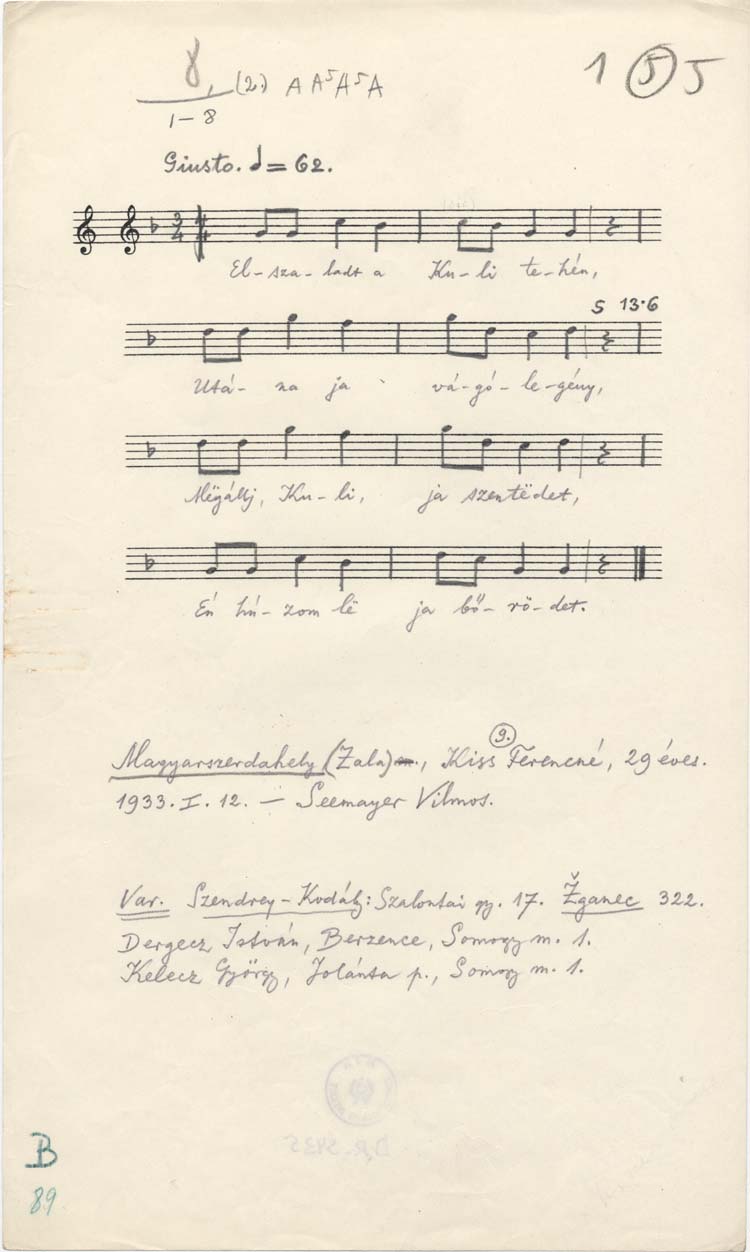 8, (2.) A A⁵ A⁵ A 1 5 5
1–8
Giusto. 𝅗𝅥 = 62.
3/4
El-sza-ladt a Ku-li te-hén,
S 13·6
Utá-na ja vá-gó-le-gény,
Mëgállj, Ku-li, ja szentëdet,
Én hú-zom lë ja bő-rö-det.
9.
Magyarszerdahely (Zala), Kiss Ferencné, 29 éves.
1933. I. 12. — Seemayer Vilmos.
Var. Szendrey-Kodály: Szalontai gy. 17. Žganec 322.
Dergecz István, Berzence, Somogy m. 1.
Kelecz György, Jolánta p., Somogy m. 1.
B
89